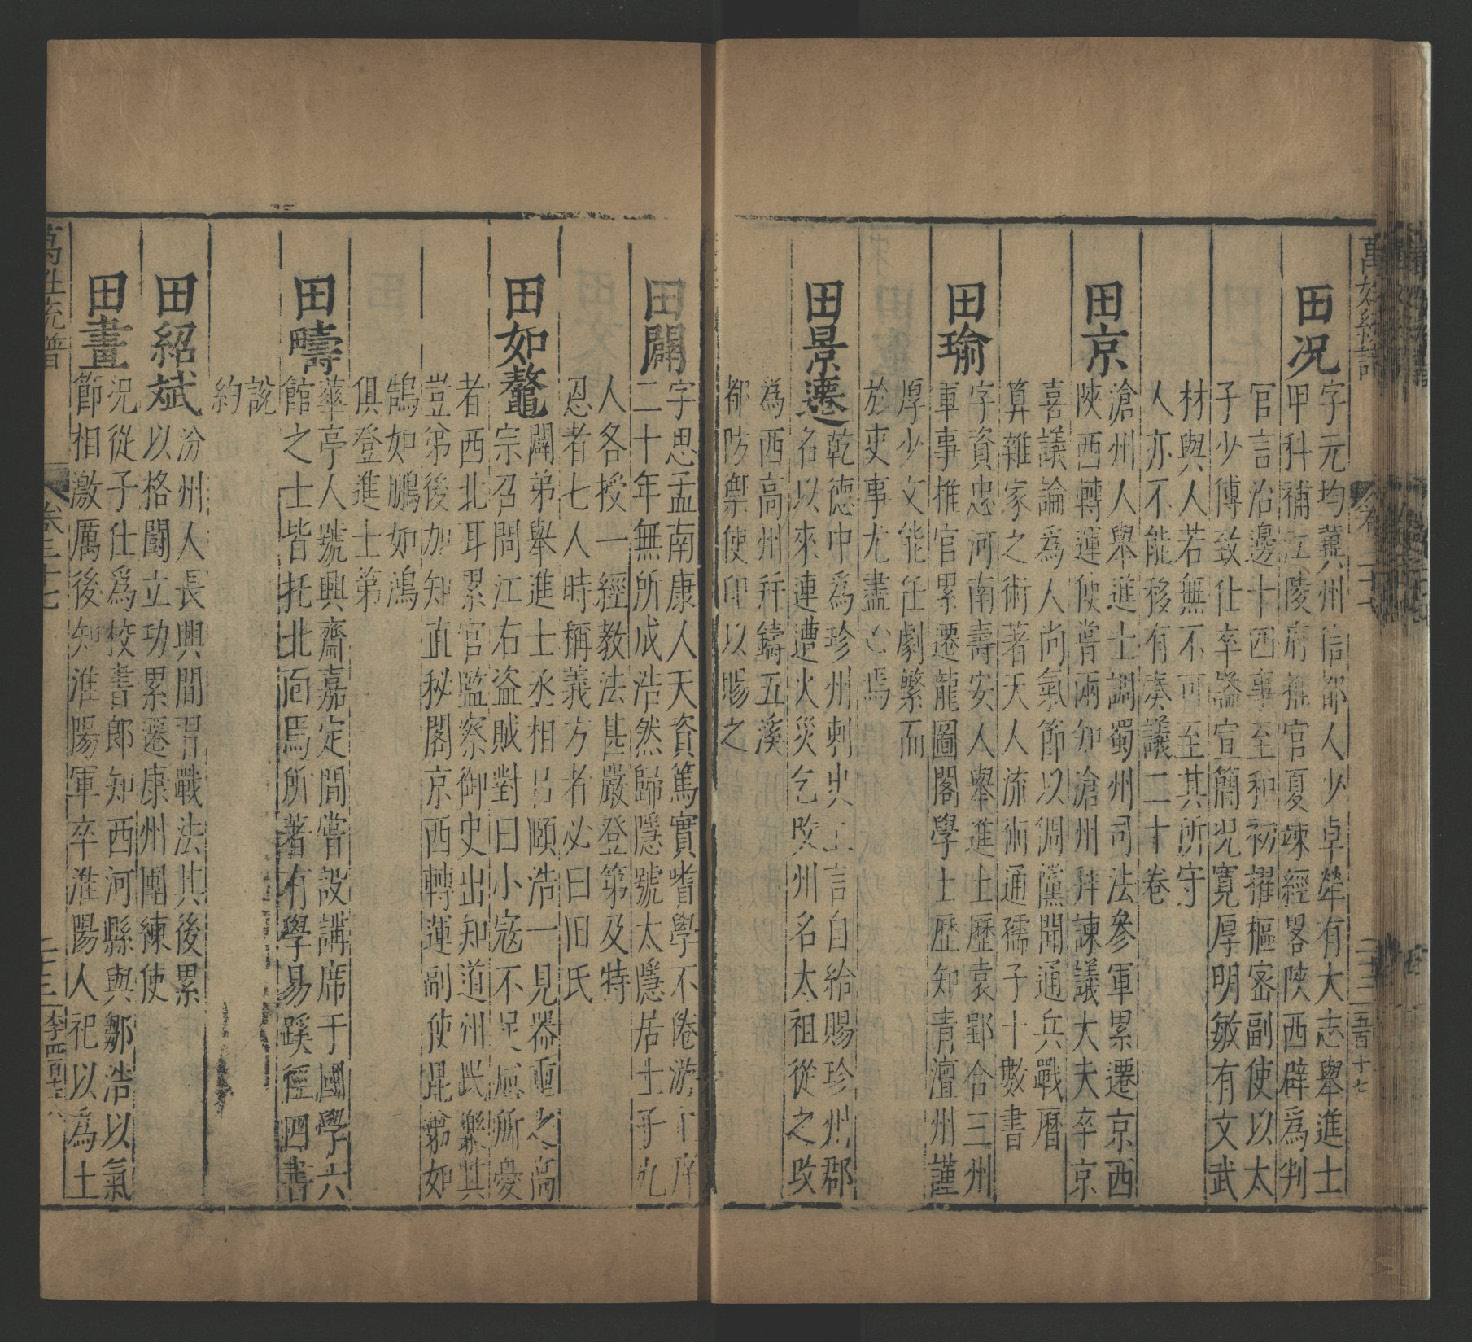 田况
字元均冀州信都人少卓犖有大志舉進士
甲科補江陵府推官夏竦經畧陜西辟爲判
官言治邊十四事至和初擢樞密副使以太
子少傅致仕卒謚宣簡况寛厚明敏有文武
材與人若無不可至其所守
人亦不能移有奏議二十卷
田京
滄州人舉進士調蜀州司法參軍累遷京西
陜西轉運使嘗兩知滄州拜諫議大夫卒京
喜議論爲人尚氣節以倜儻聞通兵戰曆
算雜家之術著天人流術通儒子十數書
田瑜
字資忠河南壽安人舉進士歷袁郢合三州
軍事推官累遷龍圖閣學士歷知青澶州謹
厚少文能任劇繁而
於吏事尤盡心焉
田景遷
乾德中爲珍州刺史上言自給賜珍州郡
名以來連遭火災乞改州名太祖從之改
爲西高州并鑄五溪
都防禦使印以賜之
田闢
字思孟南康人天資篤實嗜學不倦游上庠
二十年無所成浩然歸隱號太隱居士子九
人各授一經教法甚嚴登第及特
恩者七人時稱義方者必曰田氏
田如鰲
闢弟舉進士丞相呂頤浩一見器重之高
宗召問江右盜賊對曰小寇不足慮所憂
者西北耳累官監察御史出知道州民樂其
豈弟後加知直秘閣京西轉運副使昆弟如
鵠如鵬如鴻
俱登進士第
田疇
華亭人號興齋嘉定間嘗設講席于國學六
館之士皆托北面焉所著有學易蹊徑四書
說
約
田紹斌
汾州人長興間習戰法其後累
以格鬪立功累遷康州團練使
田畫
况從子仕爲校書郎知西河縣與鄒浩以氣
節相激厲後知淮陽軍卒淮陽人祀以為土
萬姓統譜
卷三十七
李四百十六